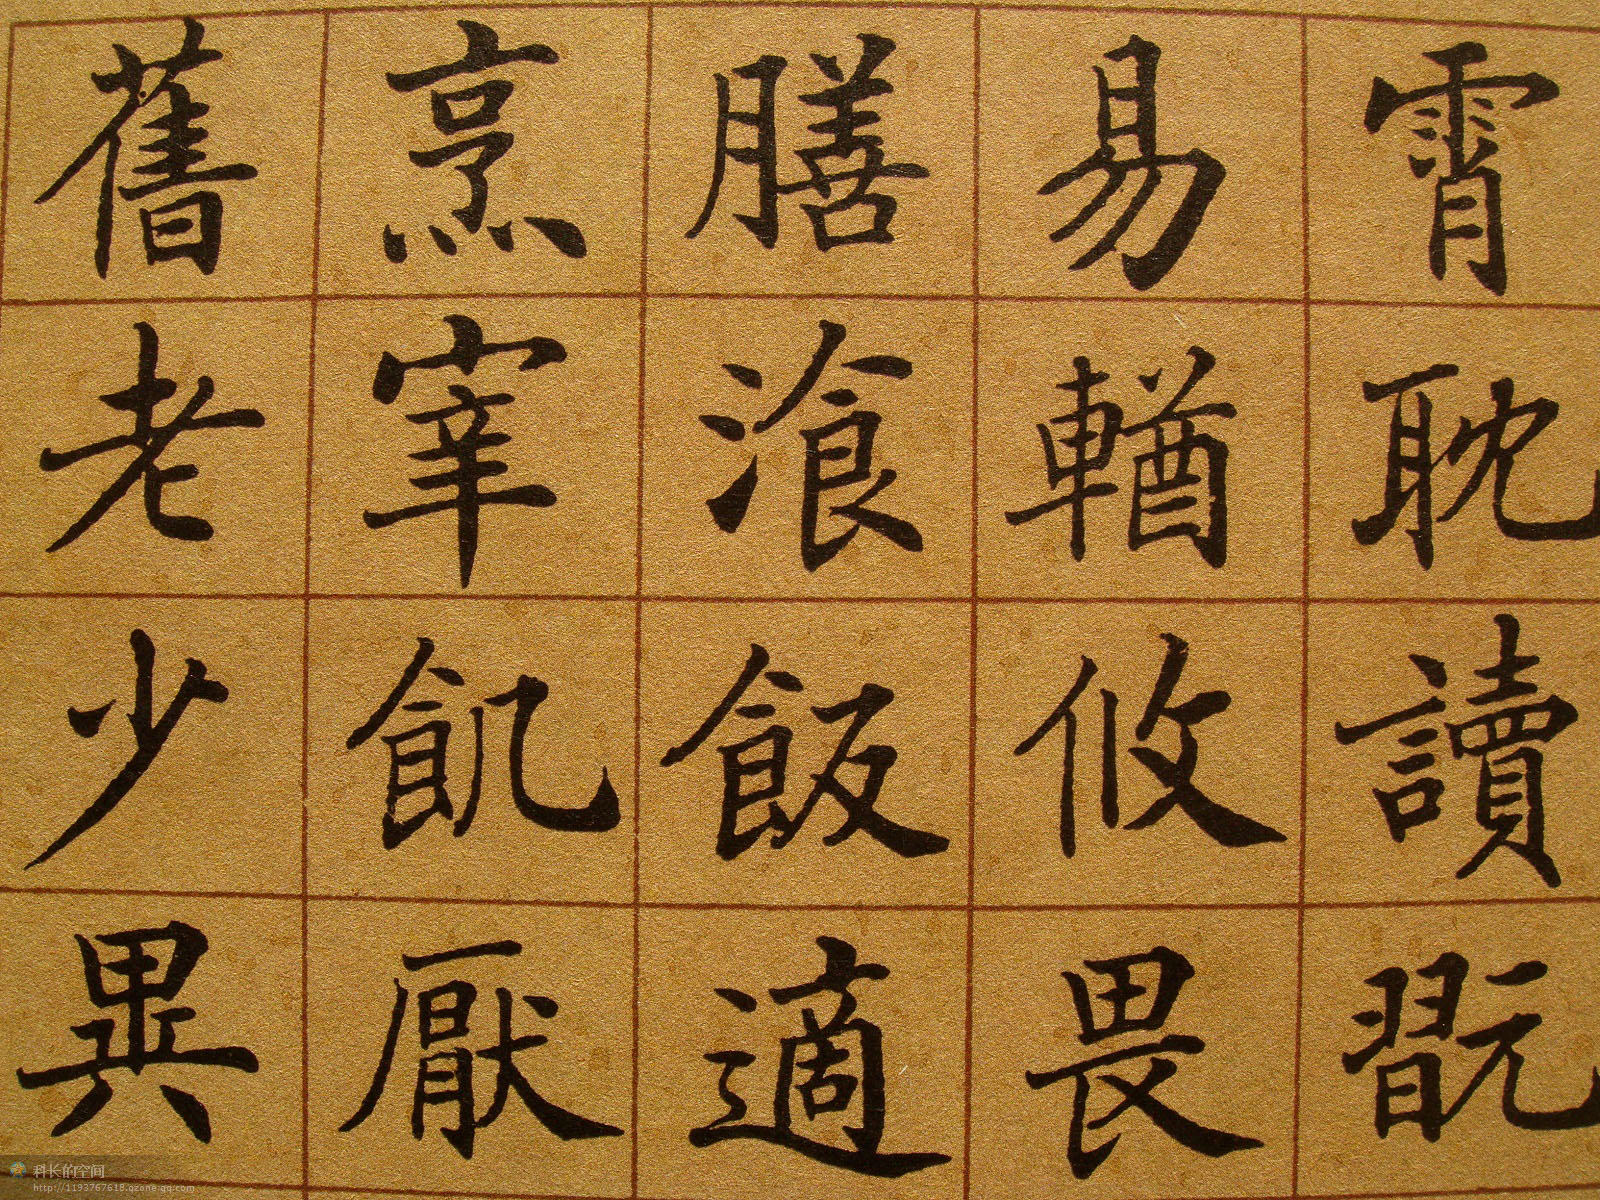 霄耽讀翫
易輶攸畏
膳湌飯適
烹宰飢厭
舊老少異
科长的空间
http://1193767618.qzone.qq.com